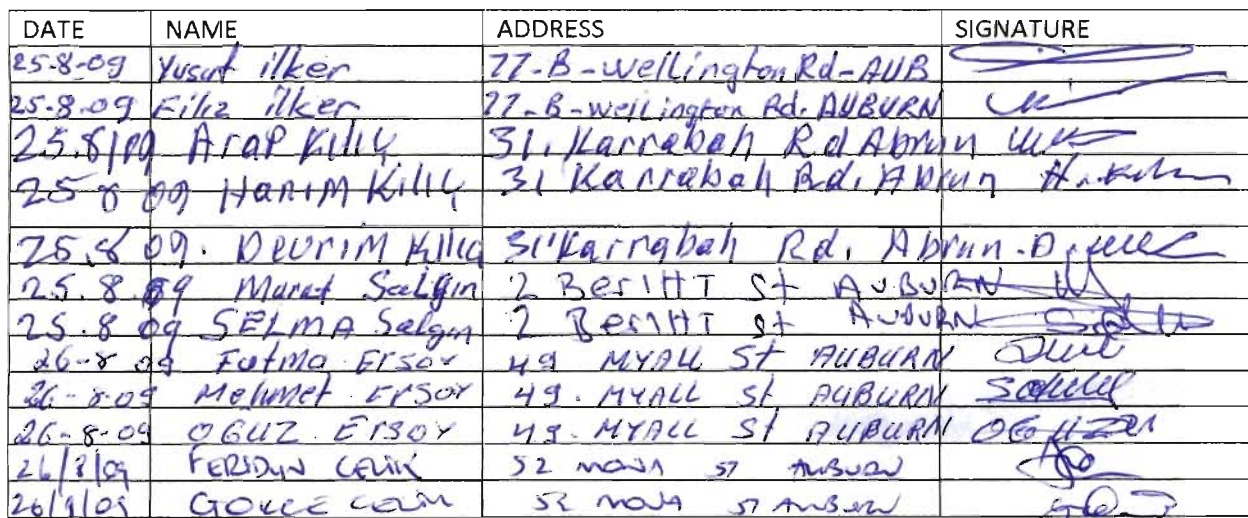 DATE NAME ADDRESS SIGNATURE
25-8-09 Yusuf ilker 77-B-wellington Rd-AUB
25-8-09 Filiz ilker 77-B-wellington Rd. AUBURN
25.8/09 Arap Kılıç 31. Karrabah Rd Abrun
25 8 09 HanıM Kılıç 31 Karrabah Rd. Abrun H. Kılıç
25.8 09. DevriM Kılıç 31 Karrabah Rd. Abrun.
25.8.09 Murat Salgın 2 St AUBURN
25.8 09 SELMA Salgın 2 St AUBURN
26-8 09 Fatma Ersoy 49 MYALL St AUBURN
26-8-09 Mehmet Ersoy 49. MYALL St AUBURN
26-8-09 OGUZ Ersoy 49. MYALL St AUBURN OGUZ
26/8/09 FERIDUN CELIK 52 MONA ST AUBURN
26/8/09 GOKCE CELIK 52 MONA ST AUBURN